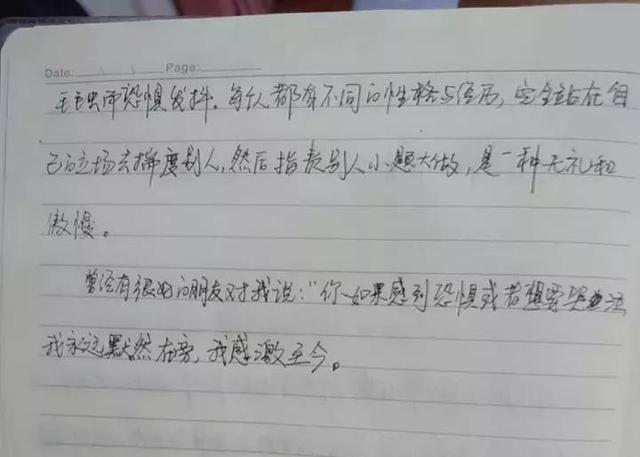 Date: Page:
毛毛虫而恐惧发抖。每个人都有不同的性格与经历，完全站在自
己的立场去揣度别人，然后指责别人小题大做，是一种无礼和
傲慢。
曾经有很好的朋友对我说："你如果感到恐惧或者想要哭泣
我永远默然在旁，我感激至今。